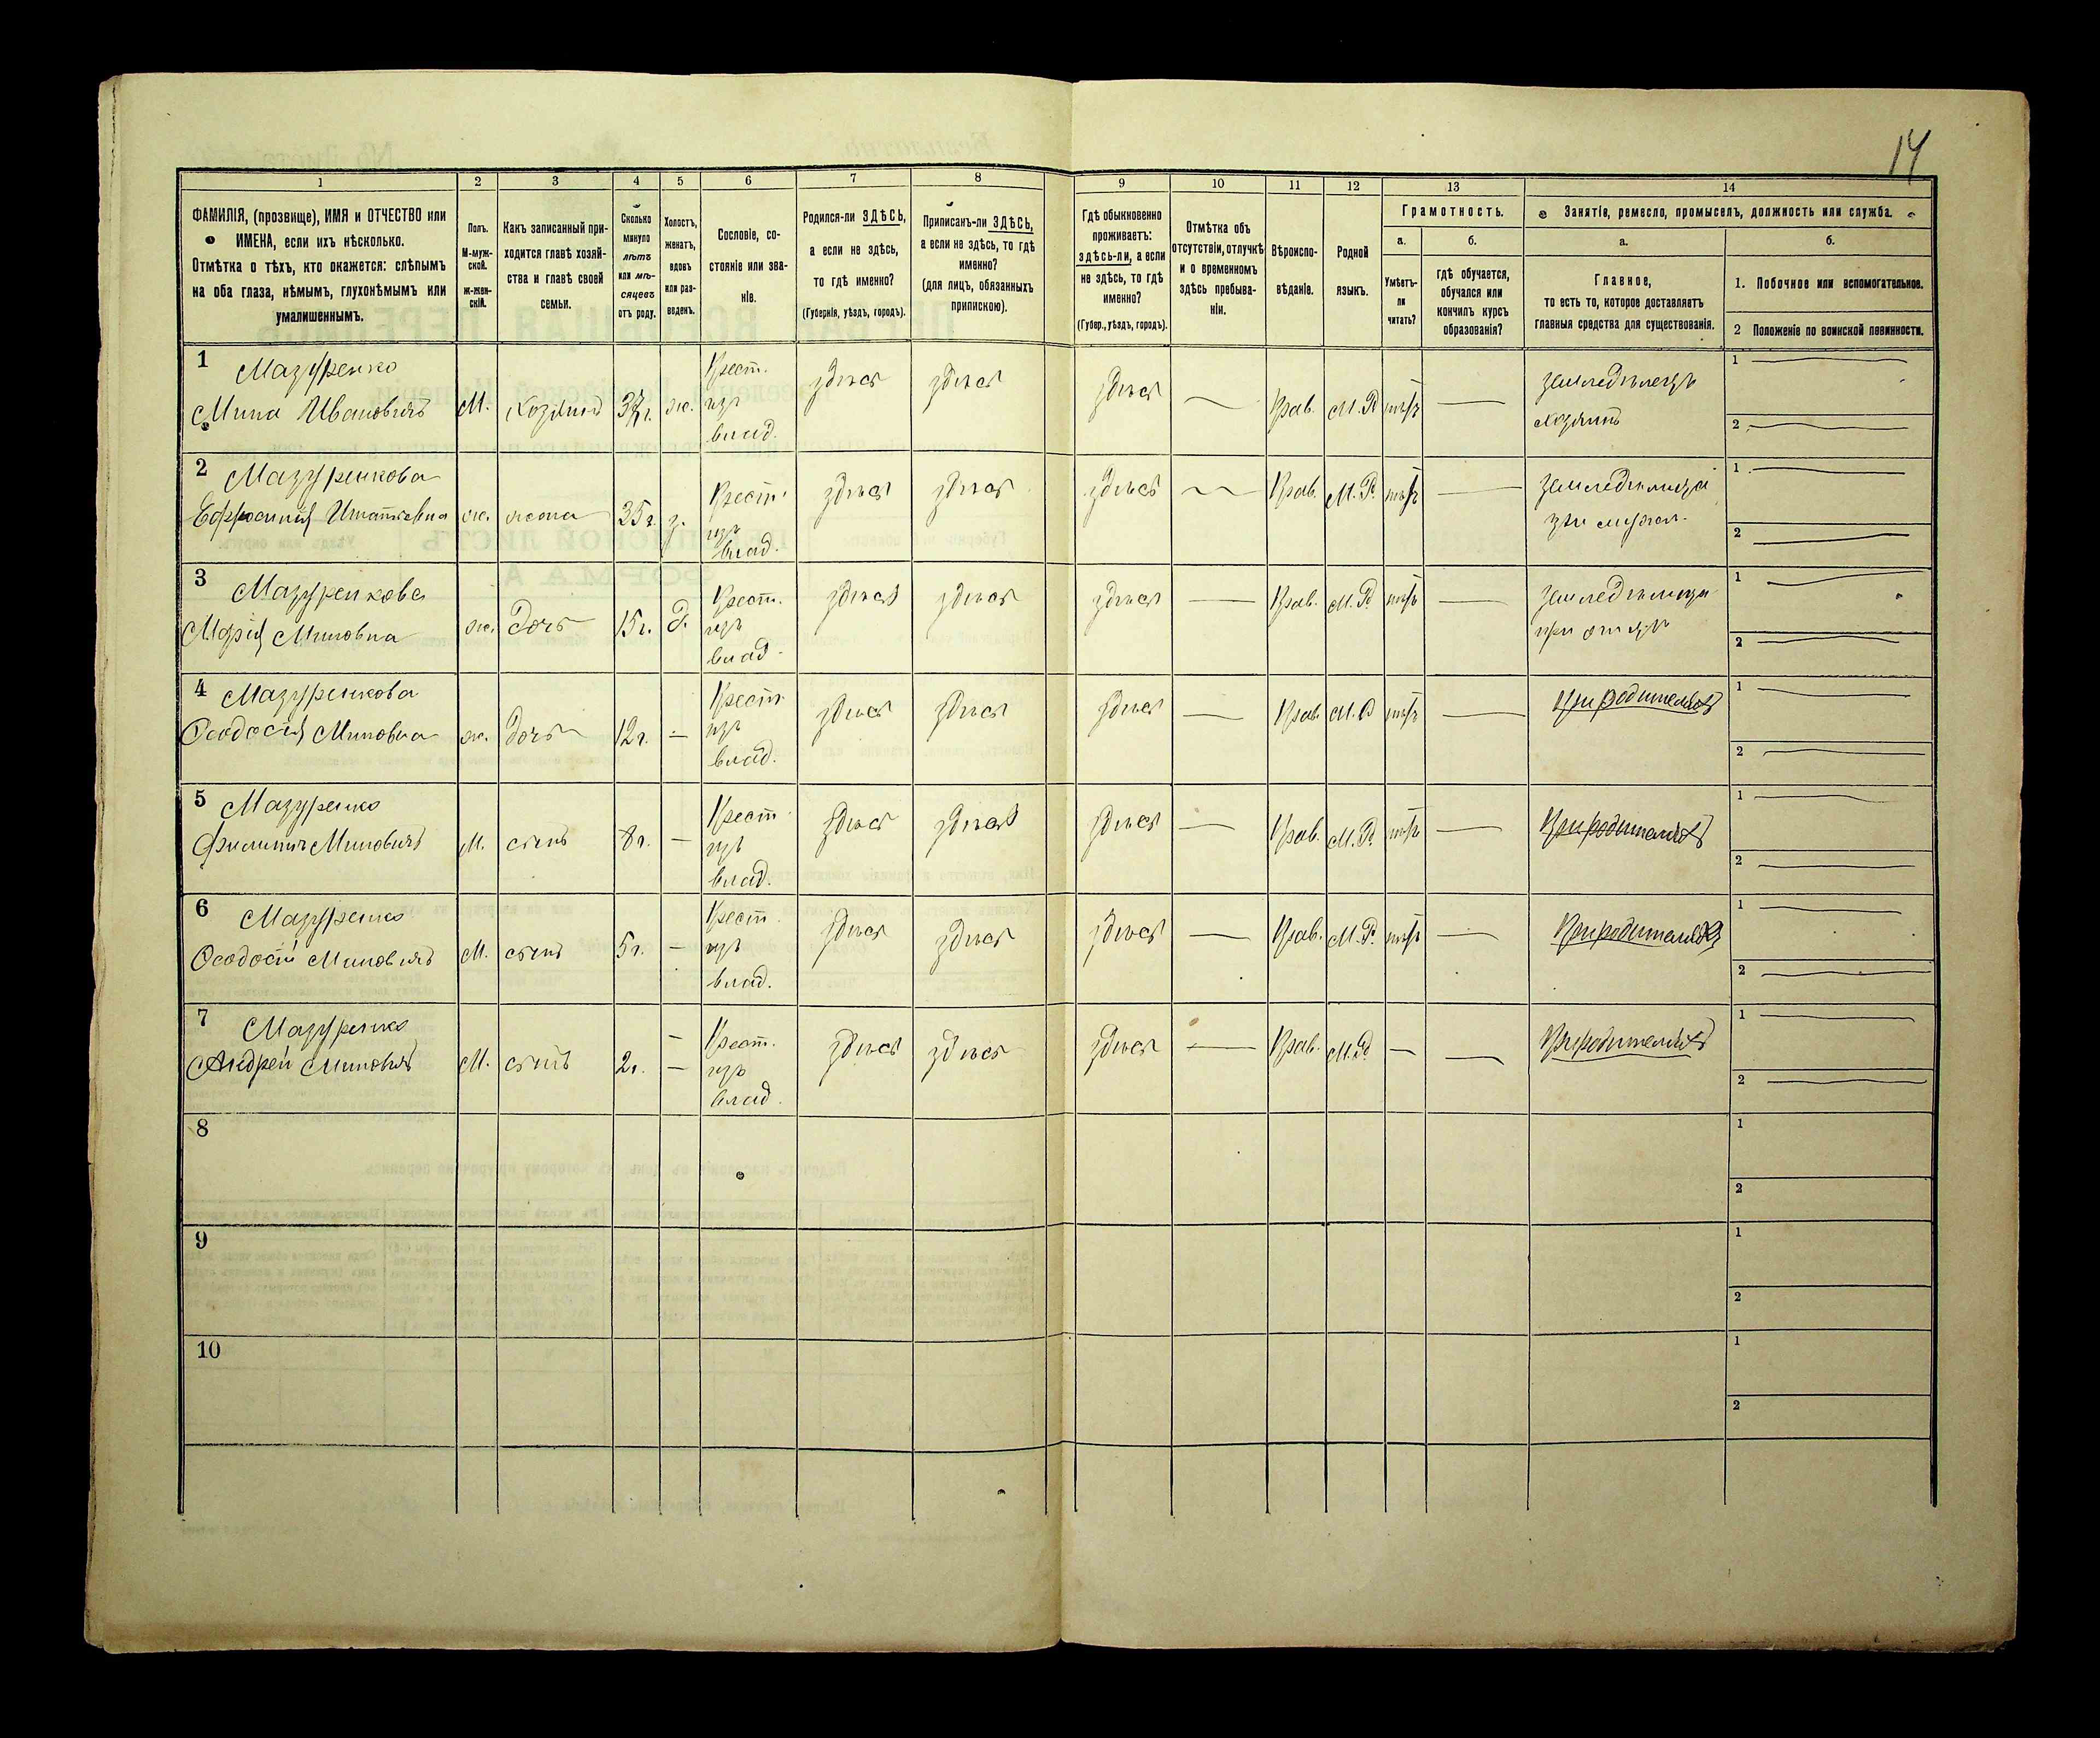 14
1
2
3
4
5
6
7
8
9
10
11
12
13
14
ФАМИЛІЯ, (прозвище), ИМЯ и ОТЧЕСТВО или
ИМЕНА, если ихъ нѣсколько.
Отмѣтка о тѣхъ, кто окажется: слѣпымъ
на оба глаза, нѣмымъ, глухонѣмымъ или
умалишеннымъ.
Полъ.
М-муж-
ской.
ж-жен-
скій.
Какъ записанный при-
ходится главѣ хозяй-
ства и главѣ своей
семьи.
Сколько
минуло
лѣтъ
или мѣ-
сяцевъ
отъ роду.
Холостъ,
женатъ,
вдовъ
или раз-
веденъ.
Сословіе, со-
стояніе или зва-
ніе.
Родился-ли ЗДѢСЬ,
а если не здѣсь,
то гдѣ именно?
(Губернія, уѣздъ, городъ).
Приписанъ-ли ЗДѢСЬ,
а если не здѣсь, то гдѣ
именно?
(для лицъ, обязанныхъ
припискою).
Гдѣ обыкновенно
проживаетъ:
здѣсь-ли, а если
не здѣсь, то гдѣ
именно?
(Губер., уѣздъ, городъ).
Отмѣтка объ
отсутствіи, отлучкѣ
и о временномъ
здѣсь пребыва-
ніи.
Вѣроиспо-
вѣданіе.
Родной
языкъ.
Грамотность.
а.
Умѣетъ-
ли
читать?
б.
гдѣ обучается,
обучался или
кончилъ курсъ
образованія?
Занятіе, ремесло, промыселъ, должность или служба.
а.
Главное,
то есть то, которое доставляетъ
главныя средства для существованія.
б.
1. Побочное или вспомогательное.
2 Положеніе по воинской повинности.
1 Мазуренко
Мина Ивановичъ
М.
хозяинъ
ж.
Крест.
изъ
влад.
здѣсь
здѣсь
здѣсь
Прав.
М. Р.
нѣтъ
земледѣлецъ
хозяинъ
1
2
2 Мазуренкова
Ефросинія Игнатьевна
ж.
жена
35 г.
з.
Крест.
изъ
влад.
здѣсь
здѣсь
здѣсь
Прав.
М. Р.
нѣтъ
при мужѣ
1
2
3 Мазуренкова
Марія Миновна
ж.
дочь
15 г.
д.
Крест.
изъ
влад.
здѣсь
здѣсь
здѣсь
Прав.
М. Р.
нѣтъ
при отцѣ
1
2
4 Мазуренкова
Ѳеодосія Миновна
ж.
дочь
12 г.
—
Крест.
изъ
влад.
здѣсь
здѣсь
здѣсь
Прав.
М. Р.
нѣтъ
При родителяхъ
1
2
5 Мазуренко
Филиппъ Миновичъ
М.
сынъ
8 г.
—
Крест.
изъ
влад.
здѣсь
здѣсь
здѣсь
Прав.
М. Р.
нѣтъ
При родителяхъ
1
2
6 Мазуренко
Ѳеодосій Миновичъ
М.
сынъ
5 г.
—
Крест.
изъ
влад.
здѣсь
здѣсь
здѣсь
Прав.
М. Р.
нѣтъ
При родителяхъ
1
2
7 Мазуренко
Андрей Миновичъ
М.
сынъ
2 г.
—
Крест.
изъ
влад.
здѣсь
здѣсь
здѣсь
Прав.
М. Р.
—
При родителяхъ
1
2
8
1
2
9
1
2
10
1
2